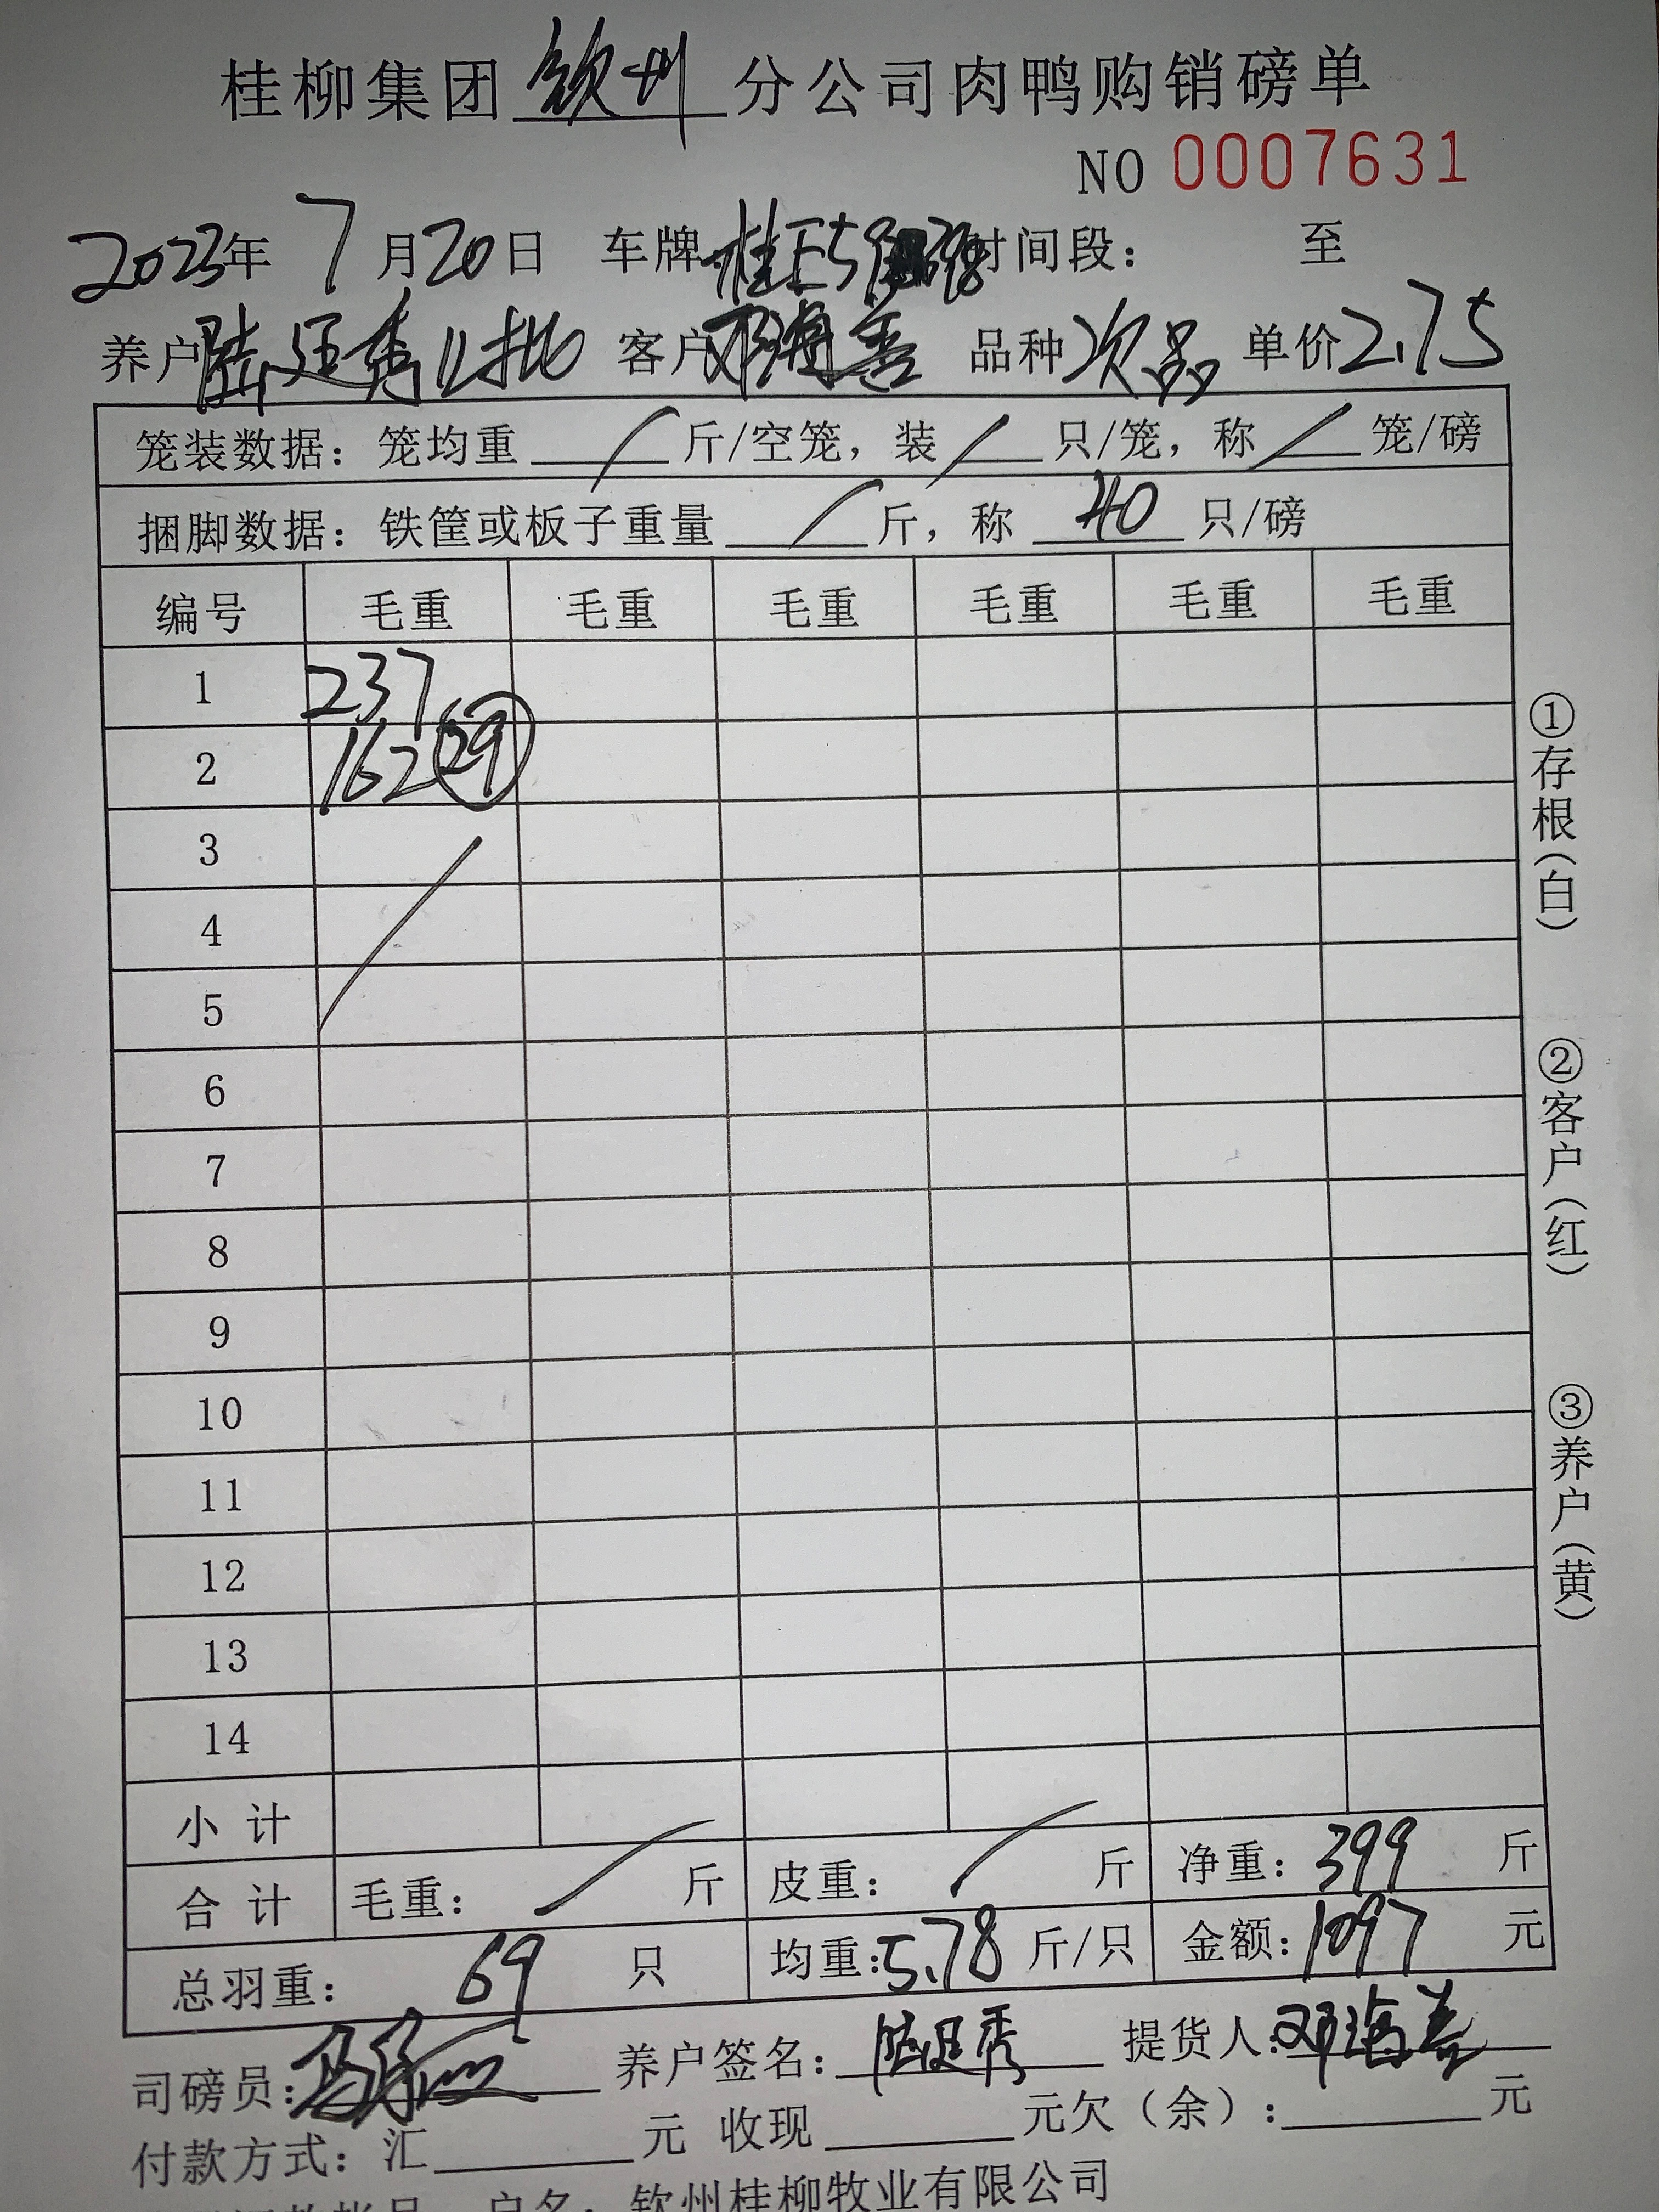 桂柳集团钦州分公司肉鸭购销磅单
NO 0007631
2023年 7月20日 车牌: 时间段: 至
养户陆廷秀 批 客户邓海善 品种次品 单价2.75
笼装数据:笼均重 / 斤/空笼,装 / 只/笼,称 / 笼/磅
捆脚数据:铁筐或板子重量 / 斤,称 40 只/磅
编号 毛重 毛重 毛重 毛重 毛重 毛重
1 237
2 162 29
3
4
5
6
7
8
9
10
11
12
13
14
小计
合计 毛重: / 斤 皮重: / 斤 净重:399 斤
总羽重: 69 只 均重:5.78 斤/只 金额:1097 元
司磅员: 养户签名:陆廷秀 提货人:邓海善
付款方式:汇 元 收现 元欠(余): 元
户名:钦州桂柳牧业有限公司
①存根(白)
②客户(红)
③养户(黄)